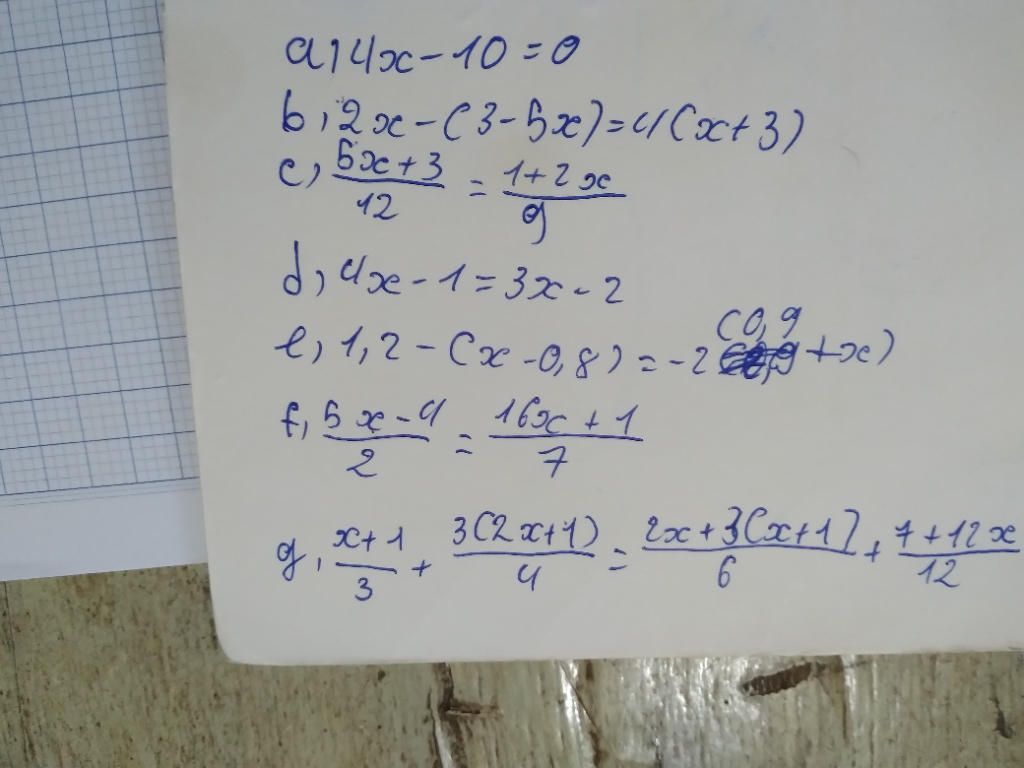 a, 4x - 10 = 0
b, 2x - (3 - 5x) = 4(x + 3)
c, \frac{5x + 3}{12} = \frac{1 + 2x}{9}
d, 4x - 1 = 3x - 2
e, 1,2 - (x - 0,8) = -2 (0,9 + x)
f, \frac{5x - 4}{2} = \frac{16x + 1}{7}
g, \frac{x + 1}{3} + \frac{3(2x + 1)}{4} = \frac{2x + 3(x + 1)}{6} + \frac{7 + 12x}{12}